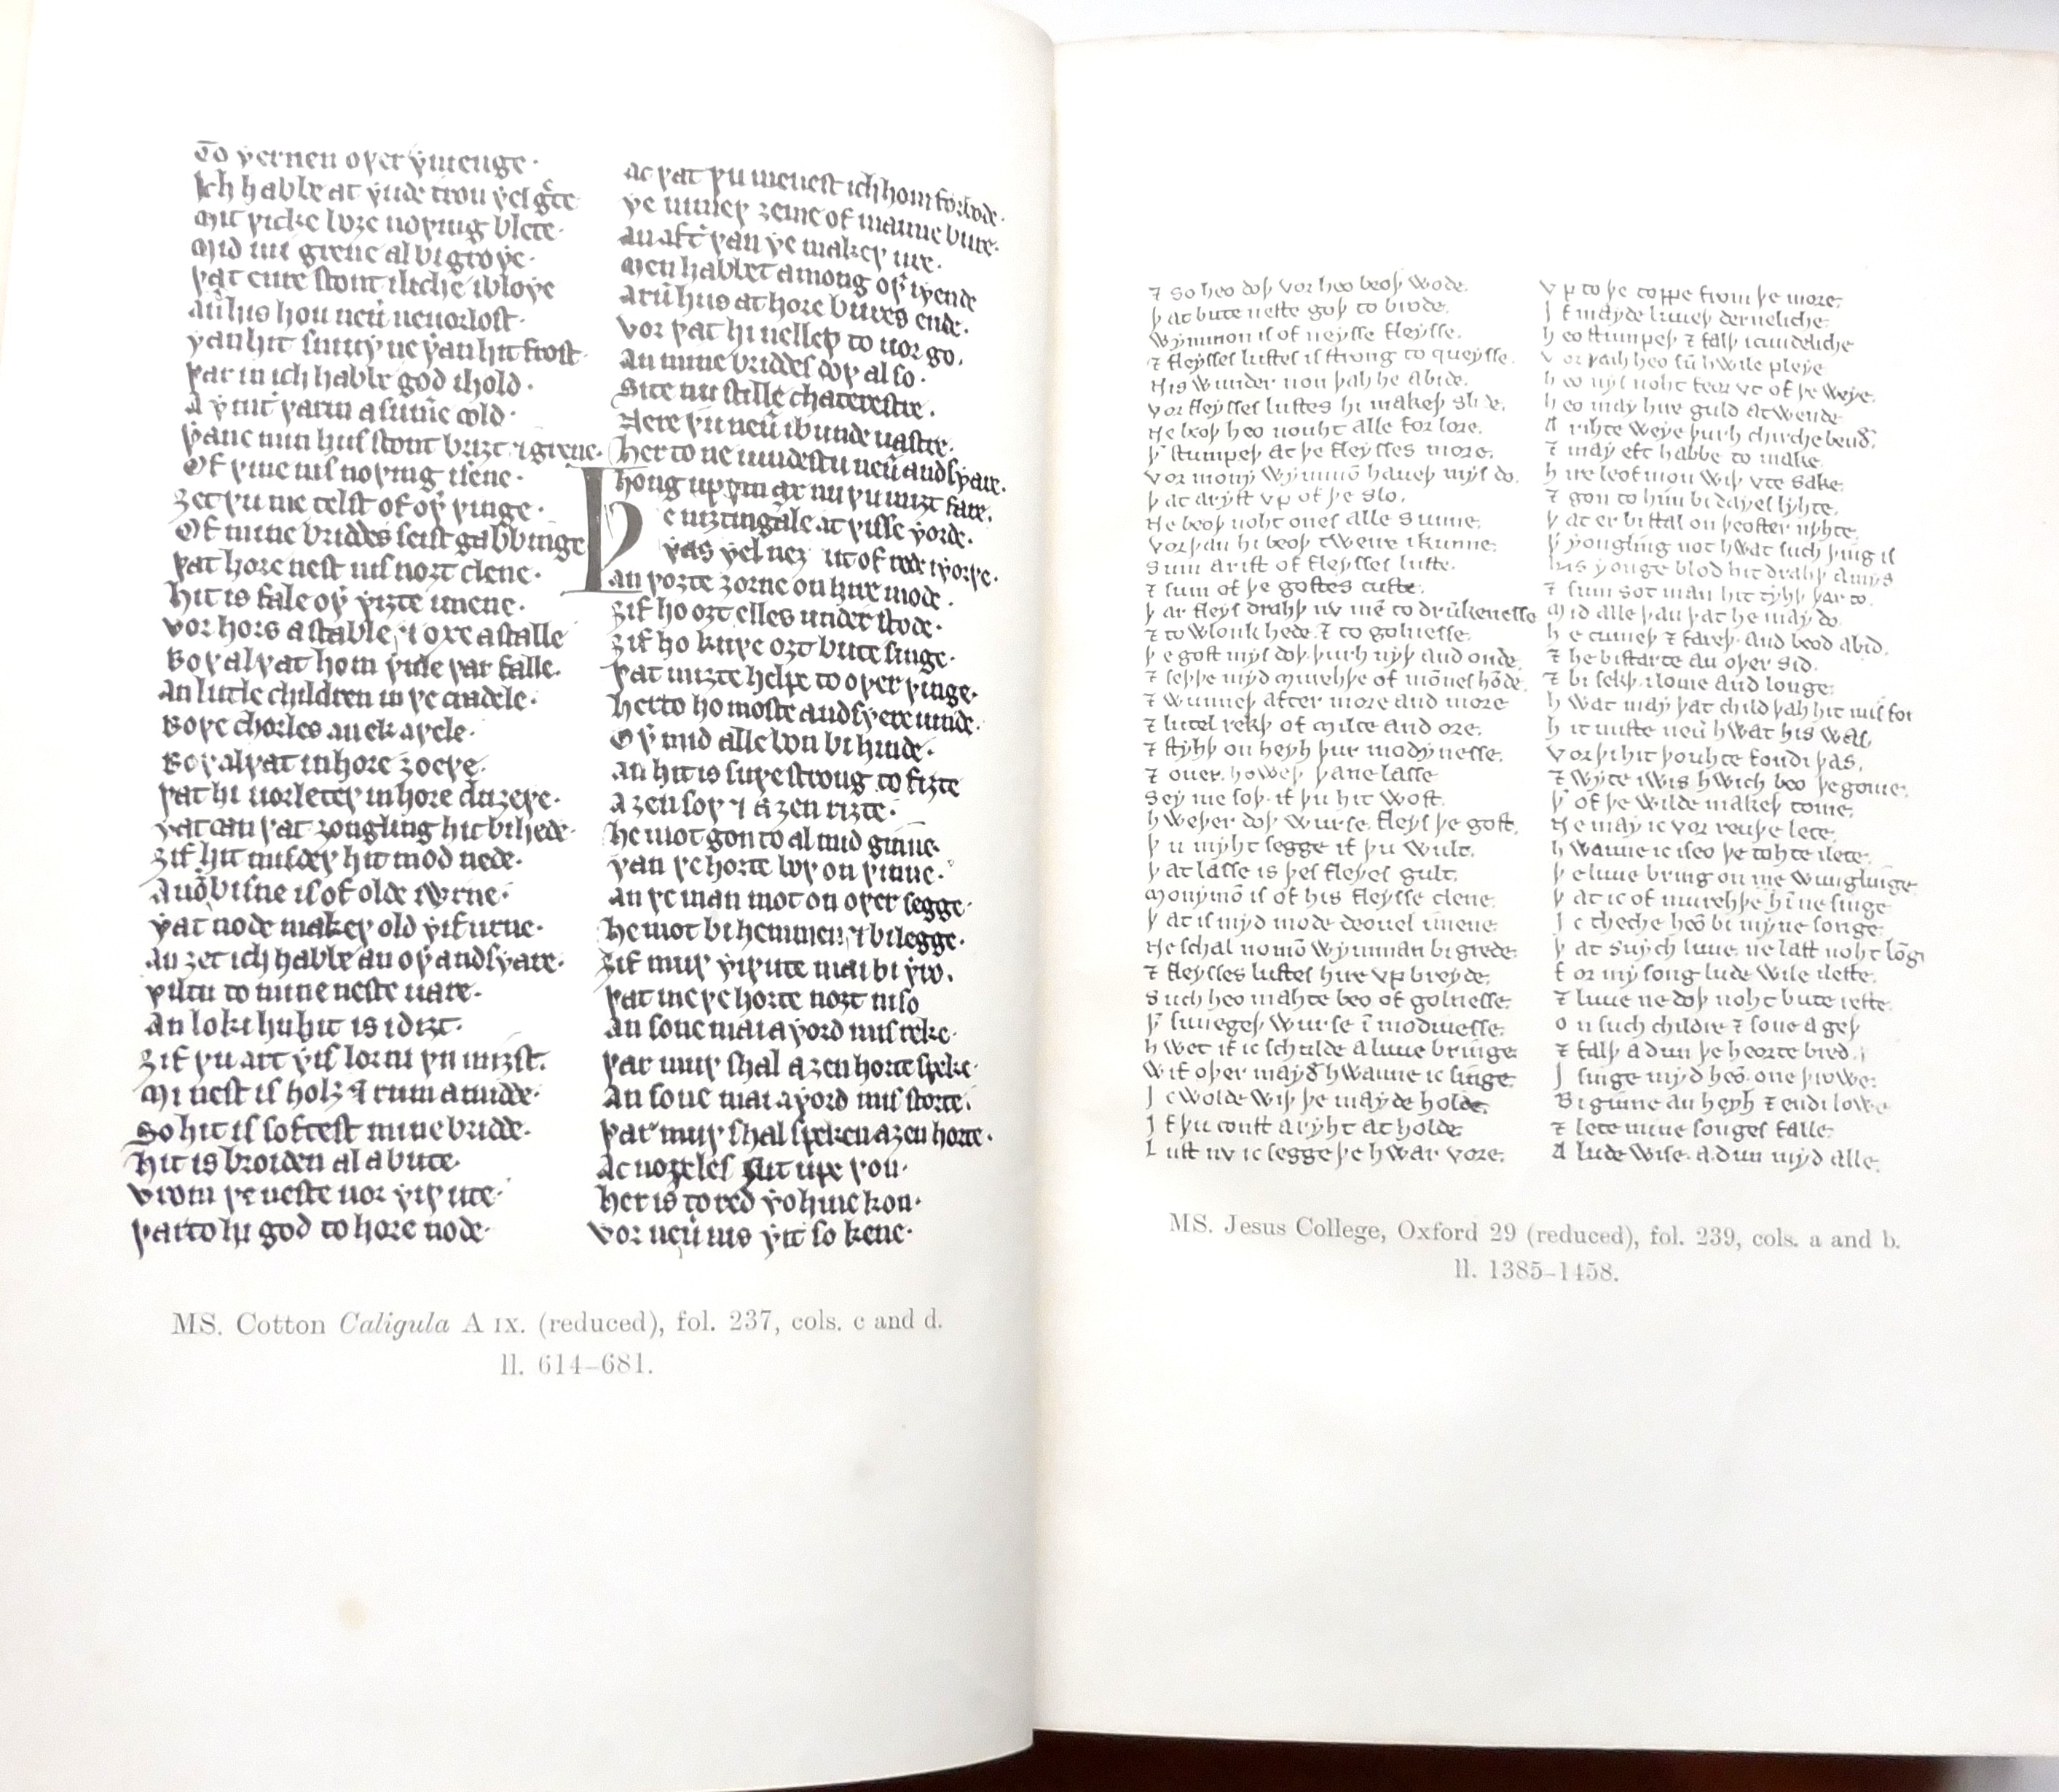 To ƿernen oþer ƿinienge·
Ich habbe at ƿude tron ƿel gͬte·
Mit þicke boȝe noþing blete·
Mid iui grene al bigroƿe·
Þat eure stont iliche ibloƿe
An his hou neū ne uorlost·
Ƿan hit sniuþ ne ƿan hit frost·
Þar in ich habbe god ihold·
A ƿint̄ ƿarm a sum̄e cold·
Ƿane min hus stont briȝt ⁊ grene·
Of þine nis noþing isene·
Ȝet þu me telst of oþ̄ þinge·
Of mine briddes seist gabbinge
Þat hore nest nis noȝt clene·
Hit is fale oþ̄ ƿiȝte imene·
Vor hors a stable ⁊ oxe a stalle
Boþ al þat hom ƿule þar falle·
An lutle children in þe cradele·
Boþe chorles an ek aþele·
Boþ al þat in hore ȝoeþe·
Þat hi uorleteþ in hore duȝeþe·
Ƿat can þat ȝongling hit bihede·
Ȝif hit misdeþ hit mod nede·
A uor̄bisne is of olde iƿrne·
Þat node makeþ old ƿif urne·
An ȝet ich habbe an oþ̄ andsƿare·
Ƿiltu to mine neste uare·
An loki hu hit is idiȝt·
Ȝif þu art ƿis lorni þu miȝst·
Mi nest is holȝ ⁊ rum amidde·
So hit is softest mine bridde·
Hit is broiden al abute·
Vrom þe neste uor ƿiþute·
Þarto hi god to hore node·
Ac þat þu menest ich hom forbode·
Ƿe nimeþ ȝeme of manne bure·
An aft̄ þan ƿe makeþ ure·
Men habbet among oþ̄ iƿende
A rū hus at hore bures ende·
Vor þat hi nelleþ to uor go·
An mine briddes doþ also·
Site nu stille chaterestre·
Nere þu neū ibunde uastre·
Her to ne uindestu neū andsƿare·
Hong up þin ax nu þu miȝt fare·
Þe niȝtingale at þisse ƿorde·
Ƿas ƿel neȝ ut of rede iƿorþe·
An þoȝte ȝorne on hire mode·
Ȝif ho oȝt elles under stode·
Ȝif ho kuþe oȝt bute singe·
Þat miȝte helpe to oþer þinge·
Herto ho moste andsƿere uinde·
Oþ̄ mid alle bon bihinde·
An hit is suþe strong to fiȝte
Aȝen soþ ⁊ aȝen riȝte·
He mot gon to al mid ginne·
Ƿan þe horte boþ on ƿinne·
An þe man mot on oþer segge·
He mot bi hemmen ⁊ bilegge·
Ȝif muþ ƿiþute mai biƿro·
Þat me þe horte noȝt niso
An sone mai a ƿord mis reke·
Þar muþ shal aȝen horte speke·
An sone mai a ƿord mis storte·
Þar muþ shal speken aȝen horte·
Ac noȝt eles ȝut upe þon·
Her is to red ƿo hine kon·
Vor neū nis ƿit so kene·
MS. Cotton Caligula A IX. (reduced), fol. 237, cols. c and d.
ll. 614–681.
⁊ So heo doþ vor heo beoþ wode.
Þ at bute neste goþ to brode.
Wymmon is of neysse fleysse.
⁊ fleysses lustes is strong to queysse.
His wunder non þah he abide.
Vor fleysses lustes hi makeþ slide.
He beoþ heo nouht alle for lore.
Þ̄ stumpeþ at þe fleysses more.
Vor mony wymmō haueþ mys do.
Þ at aryst vp of þe slo.
He beoþ noht ones alle sunne.
Vorþan hi beoþ tweire ikunne.
Sum arist of fleysses luste.
⁊ sum of þe gostes custe.
Þ ar fleys drahþ nv mē to drūkenesse
⁊ to wlonk hede. ⁊ to golnesse.
Þ e gost mys doþ þurh nyþ and onde.
⁊ seþþe myd murehþe of mōnes hōde.
⁊ wunneþ after more and more
⁊ lutel rekþ of milce and ore.
⁊ styhþ on heyh þur modynesse.
⁊ ouer howeþ þane lasse
Sey me soþ. if þu hit wost.
H weþer doþ wurse. fleys þe gost.
Þ u myht segge if þu wult.
Þ at lasse is þes fleyses gult.
Mony mō is of his fleysse clene.
Þ at is myd mode deouel imene.
He schal no mō wymman bigrede.
⁊ fleysses lustes hire vp breyde.
Such heo mahte beo of golnesse.
Þ̄ sunegeþ wurse ī modinesse.
H wet if ic schulde a luue bringe
Wif oþer mayde hwanne ic singe.
I c wolde wiþ þe mayde holde.
I f þu const aryht at holde.
L ust nv ic segge þe hwar vore.
V p to þe coppe from þe more.
I f mayde luueþ derneliche.
H eo stumpeþ ⁊ falþ icundeliche
V or þah heo sū hwile pleye
H eo nys noht feor vt of þe weye.
H eo may hire guld atwende
A rihte weye þurh chirche bend̄.
⁊ may eft habbe to make.
H ire leofmon wiþ vte sake.
⁊ gon to him bi dayes lyhte.
Þ at er bistal on þeoster nyhte.
Þ̄ yongling not hwat such þing is
His yonge blod hit drahþ amys
⁊ sum sot man hit tyhþ þar to.
Mid alle þan þat he may do.
H e cumeþ ⁊ fareþ. and beod abid.
⁊ he bistarte an oþer sid.
⁊ bi sekþ. ilome and longe.
H wat may þat child þah hit mis for
H it nuste neū hwat his was
Vor þi hit þouhte fondi þas.
⁊ wyte iwis hwich beo þe gome.
Þ̄ of þe wilde makeþ tome.
He may ic vor reuþe lete
H wanne ic iseo þe tohte ilete.
Þ e luue bring on me wunglinge
Þ at ic of murehþe hī ne singe
I c theche heō bi myne songe.
Þ at suych luue. ne last noht lōg
F or my song lude wile ileste.
⁊ luue ne doþ noht bute reste.
O n such childre ⁊ sone ageþ
⁊ falþ adun þe heorte breþ.
I singe myd heō. one þrowe.
Biginne an heyh ⁊ endi lowe
⁊ lete mine songes falle.
A lude wise. adun myd alle.
MS. Jesus College, Oxford 29 (reduced), fol. 239, cols. a and b.
ll. 1385–1458.